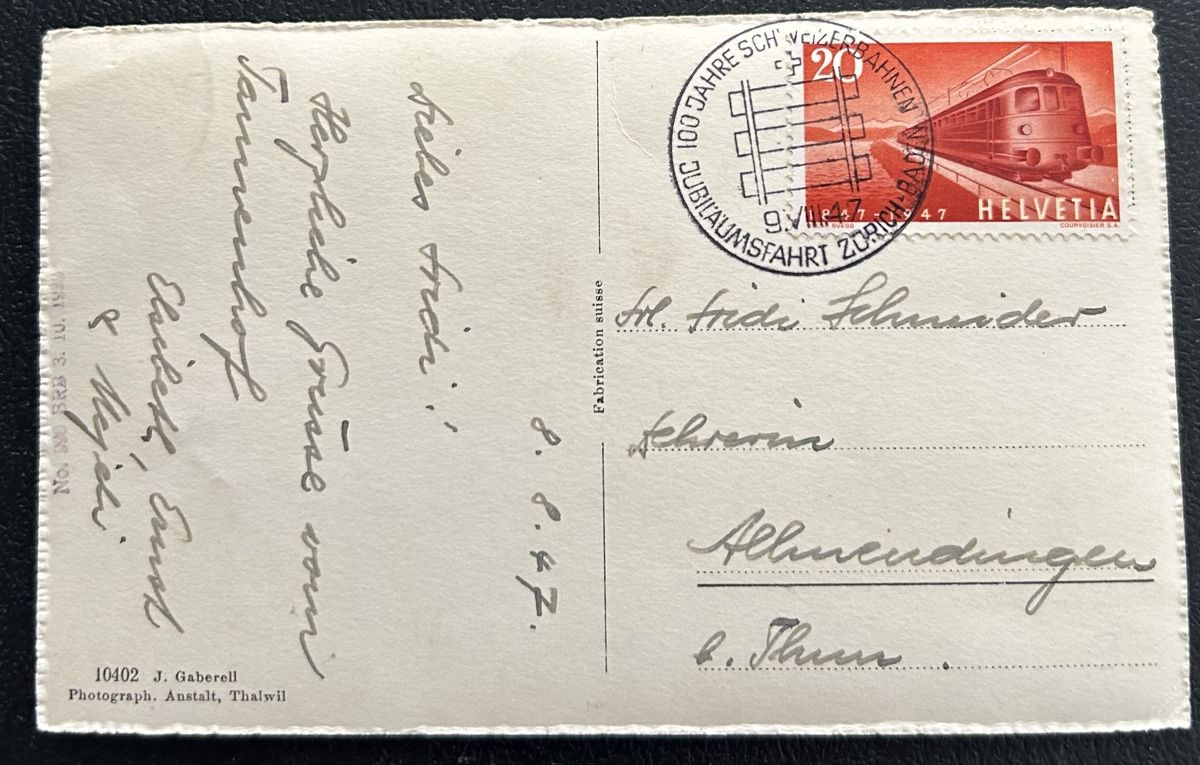 8. 8. 47.
Liebes Fridi!
Herzliche Grüsse vom
Tannenhof
Elsbeth, Ernst
&
No. 990 BRB 3. 10. 19
10402 J. Gaberell
Photograph. Anstalt, Thalwil
Fabrication suisse
100 JAHRE SCHWEIZERBAHNEN
JUBILÄUMSFAHRT ZÜRICH-BADEN
9.VIII.47
20
1847 1947
HELVETIA
RUEGG
COURVOISIER S.A.
Frl. Fridi Schneider
Allmendingen
b. Thun.